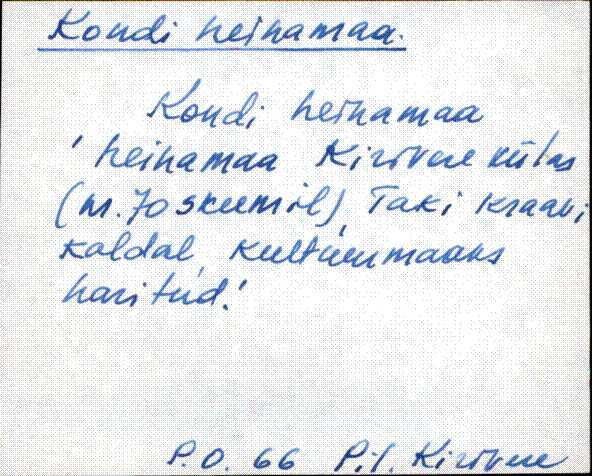 Kondi heinamaa.
Kondi heinamaa
' heinamaa Kirivere külas
(nr. 70 skeemil), Taki kraavi
kaldal, kultuurmaaks
haritud.'
P.O. 66 Pil. Kirivere